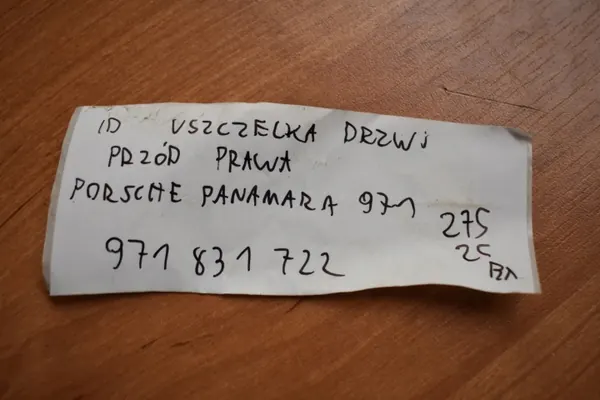 ID USZCZELKA DRZWI
PRZÓD PRAWA
PORSCHE PANAMARA 971
275
971 831 722